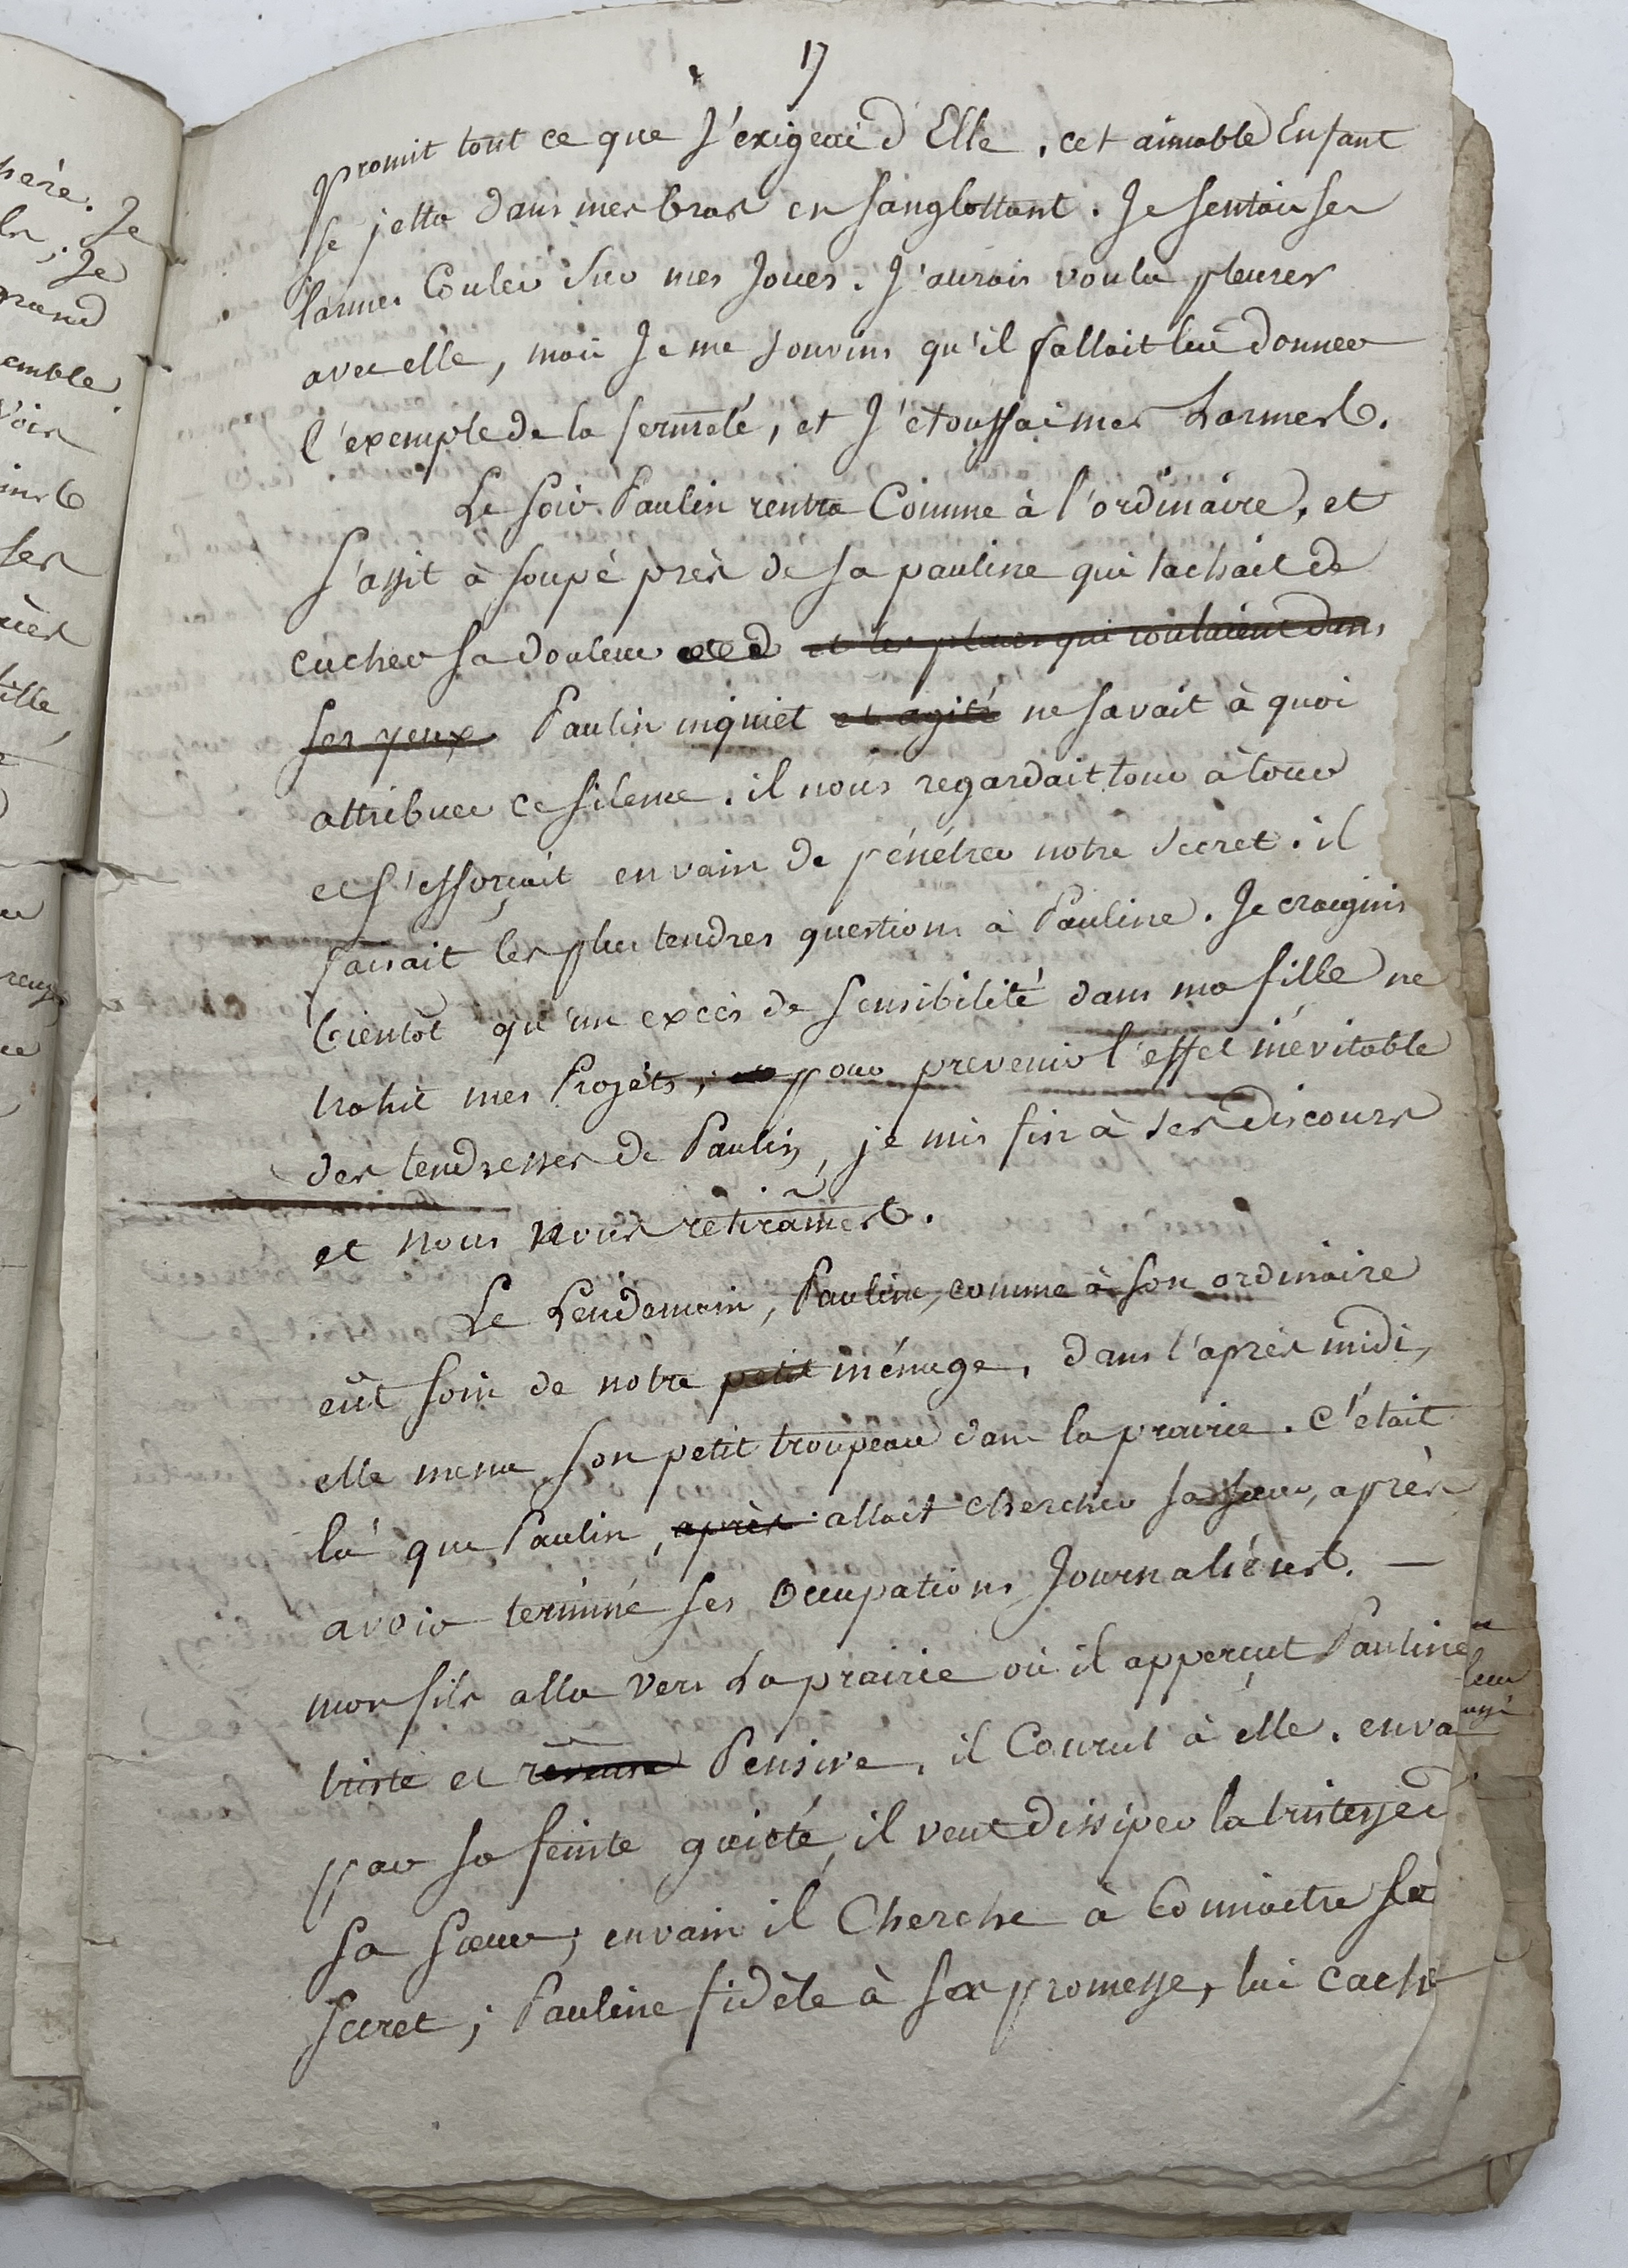 17
promit tout ce que J'exigeai d'Elle. cet aimable Enfant
se jetta dans mes bras en sanglottant. Je sentais ses
larmes Couler sur mes Joues. J'aurais voulu pleurer
avec elle, mais Je me souvins qu'il fallait lui donner
l'exemple de la fermeté, et J'étouffai mes Larmes.
Le soir Paulin rentra Comme à l'ordinaire, et
s'assit à soupé près de sa pauline qui tachait de
cacher sa douleur et les pleurs qui roulaient dans
ses yeux. Paulin inquiet et agité ne savait à quoi
attribuer ce silence. il nous regardait tour à tour
et s'efforçait envain de pénétrer notre secret. il
faisait les plus tendres questions à Pauline. Je craignis
bientôt qu'un excès de sensibilité dans ma fille ne
trahit mes Projets, pour prevenir l'effet inévitable
des tendresses de Paulin, je mis fin à ses discours
et nous nous retirâmes.
Le Lendemain, Pauline, comme à son ordinaire
eût soin de notre petit ménage, dans l'après midi,
elle mena son petit troupeau dans la prairie. C'était
là que Paulin, après allait chercher sa sœur, après
avoir terminé ses Occupations Journalières. —
mon fils alla vers La prairie où il apperçut Pauline
triste et rêveuse Pensive, il Courut à elle. enva
par sa feinte gaieté, il veut dissiper la tristesse d
sa sœur; envain il Cherche à Connaitre se
secret; Pauline fidèle à sa promesse, lui cach